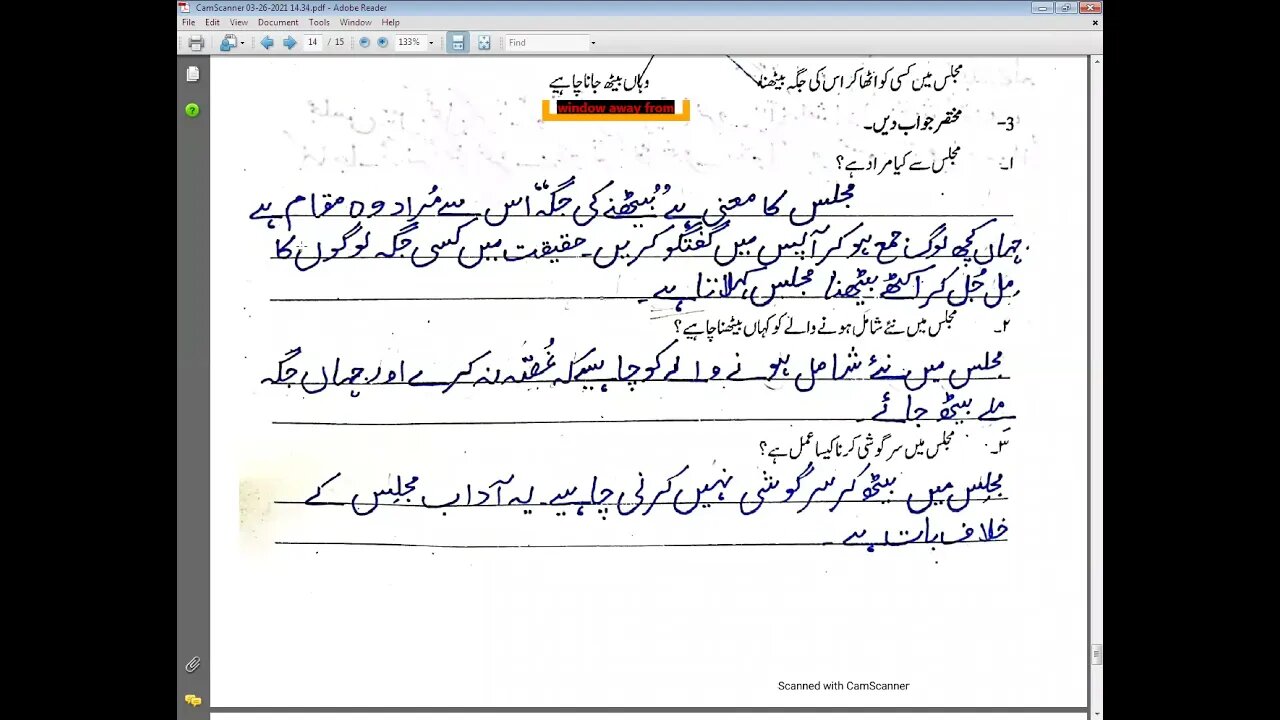 CamScanner 03-26-2021 14.34.pdf - Adobe Reader
File Edit View Document Tools Window Help
14 / 15 133% Find
مجلس میں کسی کو اٹھا کر اس کی جگہ بیٹھنا وہاں بیٹھ جانا چاہیے
window away from
3- مختصر جواب دیں۔
۱۔ مجلس سے کیا مراد ہے؟
مجلس کا معنی ہے ”بیٹھنے کی جگہ“ اس سے مُراد وہ مقام ہے
جہاں کچھ لوگ جمع ہو کر آپس میں گفتگو کریں۔ حقیقت میں کسی جگہ لوگوں کا
مِل جُل کر اکٹھے بیٹھنا مجلس کہلاتا ہے۔
۲۔ مجلس میں نئے شامل ہونے والے کو کہاں بیٹھنا چاہیے؟
مجلس میں نئے شامل ہونے والے کو چاہیے کہ غُصّہ نہ کرے اور جہاں جگہ
ملے بیٹھ جائے۔
۳۔ مجلس میں سرگوشی کرنا کیسا عمل ہے؟
مجلِس میں بیٹھ کر سرگوشی نہیں کرنی چاہیے۔ یہ آداب مجلِس کے
خلاف بات ہے۔
Scanned with CamScanner